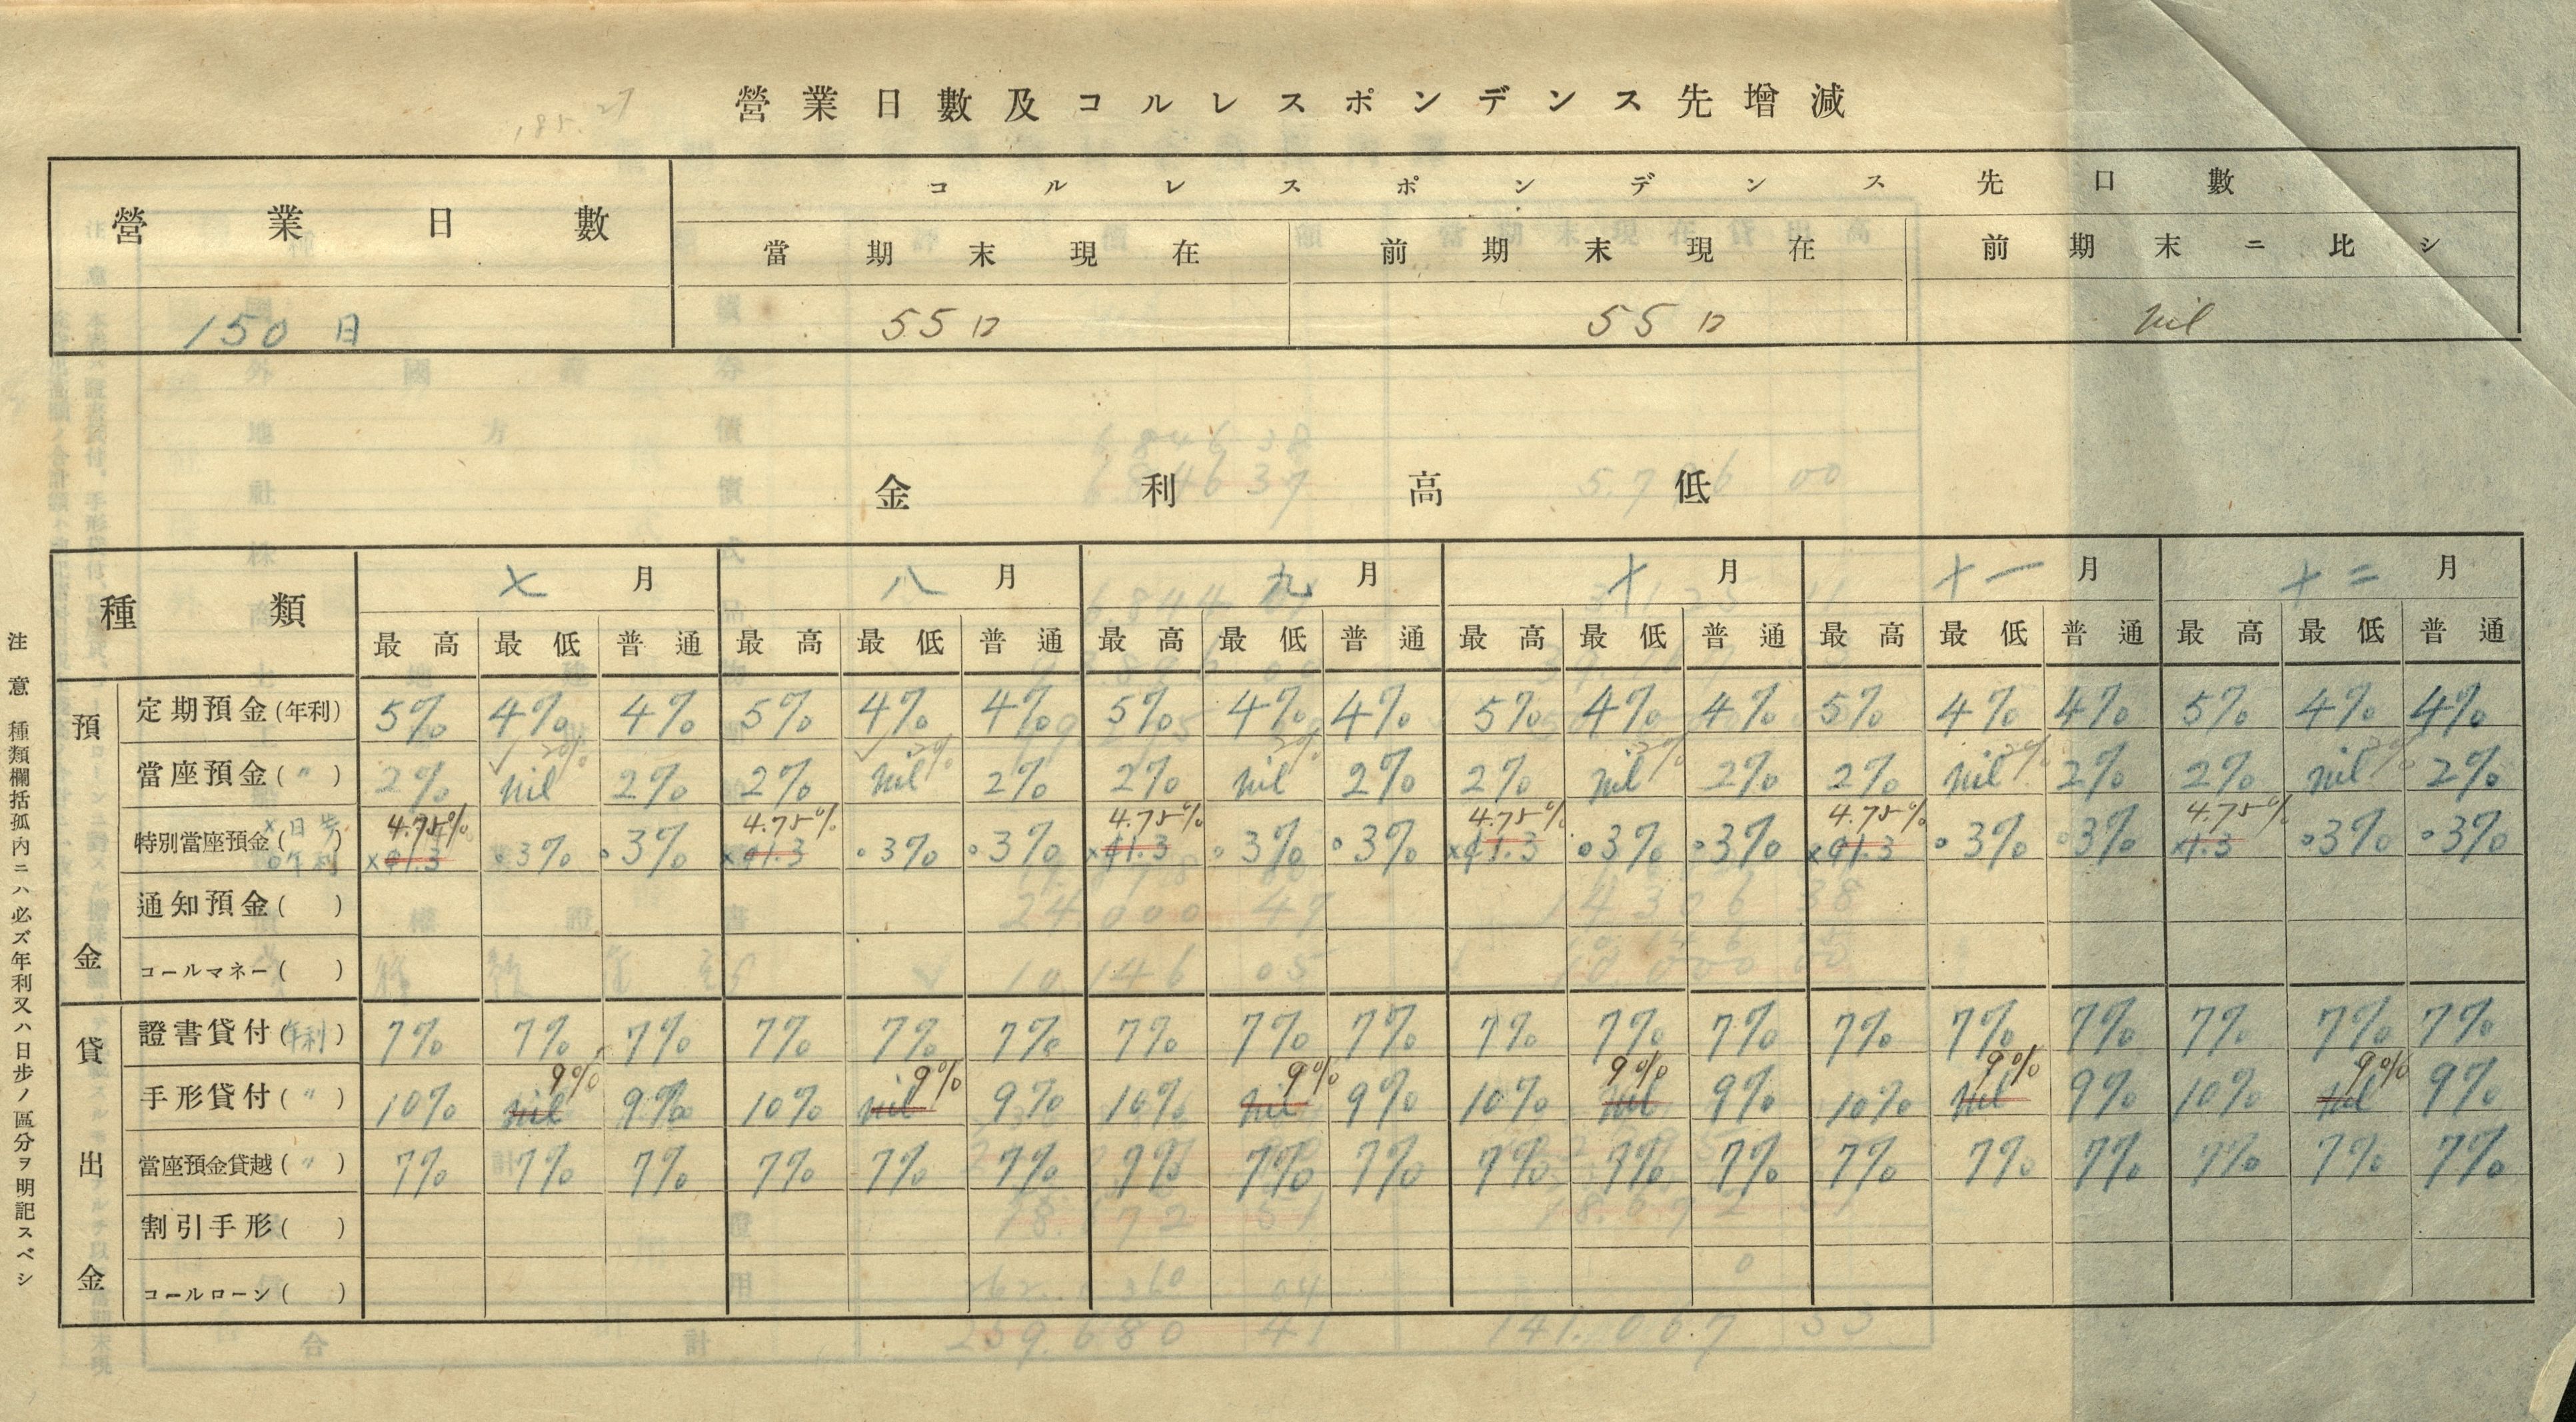 營業日數及コルレスポンデンス先增減
營業日數 コルレスポンデンス先口數
當期末現在 前期末現在 前期末ニ比シ
150日 55口 55口 nil
金利高低
種類 七月 八月 九月 十月 十一月 十二月
最高 最低 普通 最高 最低 普通 最高 最低 普通 最高 最低 普通 最高 最低 普通 最高 最低 普通
預金
定期預金(年利) 5% 4% 4% 5% 4% 4% 5% 4% 4% 5% 4% 4% 5% 4% 4% 5% 4% 4%
2% 2% 2% 2% 2% 2%
當座預金(〃) 2% nil 2% 2% nil 2% 2% nil 2% 2% nil 2% 2% nil 2% 2% nil 2%
4.75% 4.75% 4.75% 4.75% 4.75% 4.75%
特別當座預金(×日歩 ○年利) ×1.3 ○3% ○3% ×1.3 ○3% ○3% ×1.3 ○3% ○3% ×1.3 ○3% ○3% ×1.3 ○3% ○3% ×1.3 ○3% ○3%
通知預金( )
コールマネー( )
貸出金
證書貸付(年利) 7% 7% 7% 7% 7% 7% 7% 7% 7% 7% 7% 7% 7% 7% 7% 7% 7% 7%
9% 9% 9% 9% 9% 9%
手形貸付(〃) 10% nil 9% 10% nil 9% 10% nil 9% 10% nil 9% 10% nil 9% 10% nil 9%
當座預金貸越(〃) 7% 7% 7% 7% 7% 7% 7% 7% 7% 7% 7% 7% 7% 7% 7% 7% 7% 7%
割引手形( )
コールローン( )
注意 種類欄括孤內ニハ必ズ年利又ハ日步ノ區分ヲ明記スベシ